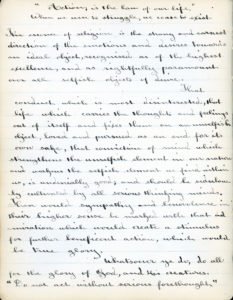 "Action, is the law of our life."
When we cease to struggle, we cease to exist.
The essence of religion is the strong and earnest
direction of the emotions and desires towards
an ideal object, recognised as of the highest
excellence, and as rightfully paramount
over all selfish objects of desire.
That
conduct which is most disinterested, that
life which carries the thoughts and feelings
out of itself and fixes them on an unselfish
object, loved and pursued as an end for its
own sake, that conviction of mind which
strengthens the unselfish element in our nature
and makes the selfish element find within
us, is unusually good, and should be
cultivated by all serious thinking minds.
Nor would sympathy and benevolence in
their higher sense be marked with that ad
miration which would create a stimulus
for further beneficent action, which would
be true glory.
Whatsoever ye do, do all
for the glory of God, and His creatures.
"Do not act without serious forethought"